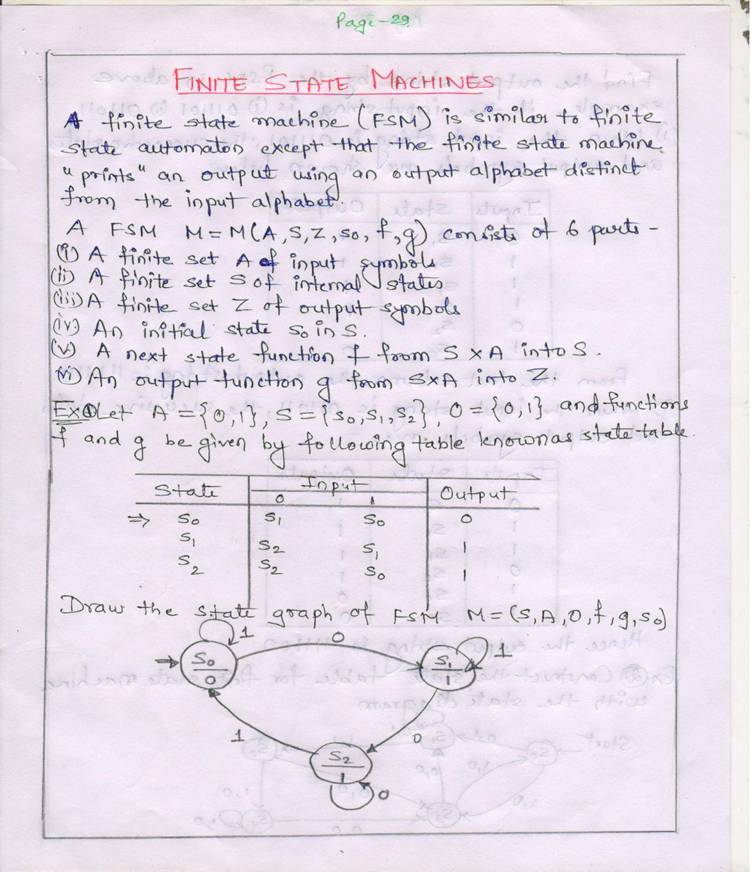 Page-29
FINITE STATE MACHINES
A finite state machine (FSM) is similar to finite
state automaton except that the finite state machine
"prints" an output using an output alphabet distinct
from the input alphabet.
A FSM M = M(A, S, Z, s0, f, g) consists of 6 parts -
(i) A finite set A of input symbols
(ii) A finite set S of internal states
(iii) A finite set Z of output symbols
(iv) An initial state s0 in S.
(v) A next state function f from S x A into S.
(vi) An output function g from S x A into Z.
Ex① Let A = {0,1}, S = {s0, s1, s2}, O = {0,1} and functions
f and g be given by following table known as state table.
State Input Output
0 1
⇒ s0 s1 s0 0
s1 s2 s1 1
s2 s2 s0 1
Draw the state graph of FSM M = (S, A, O, f, g, s0)
1 0 1
s0 s1
0 1
1 0
s2
1
0